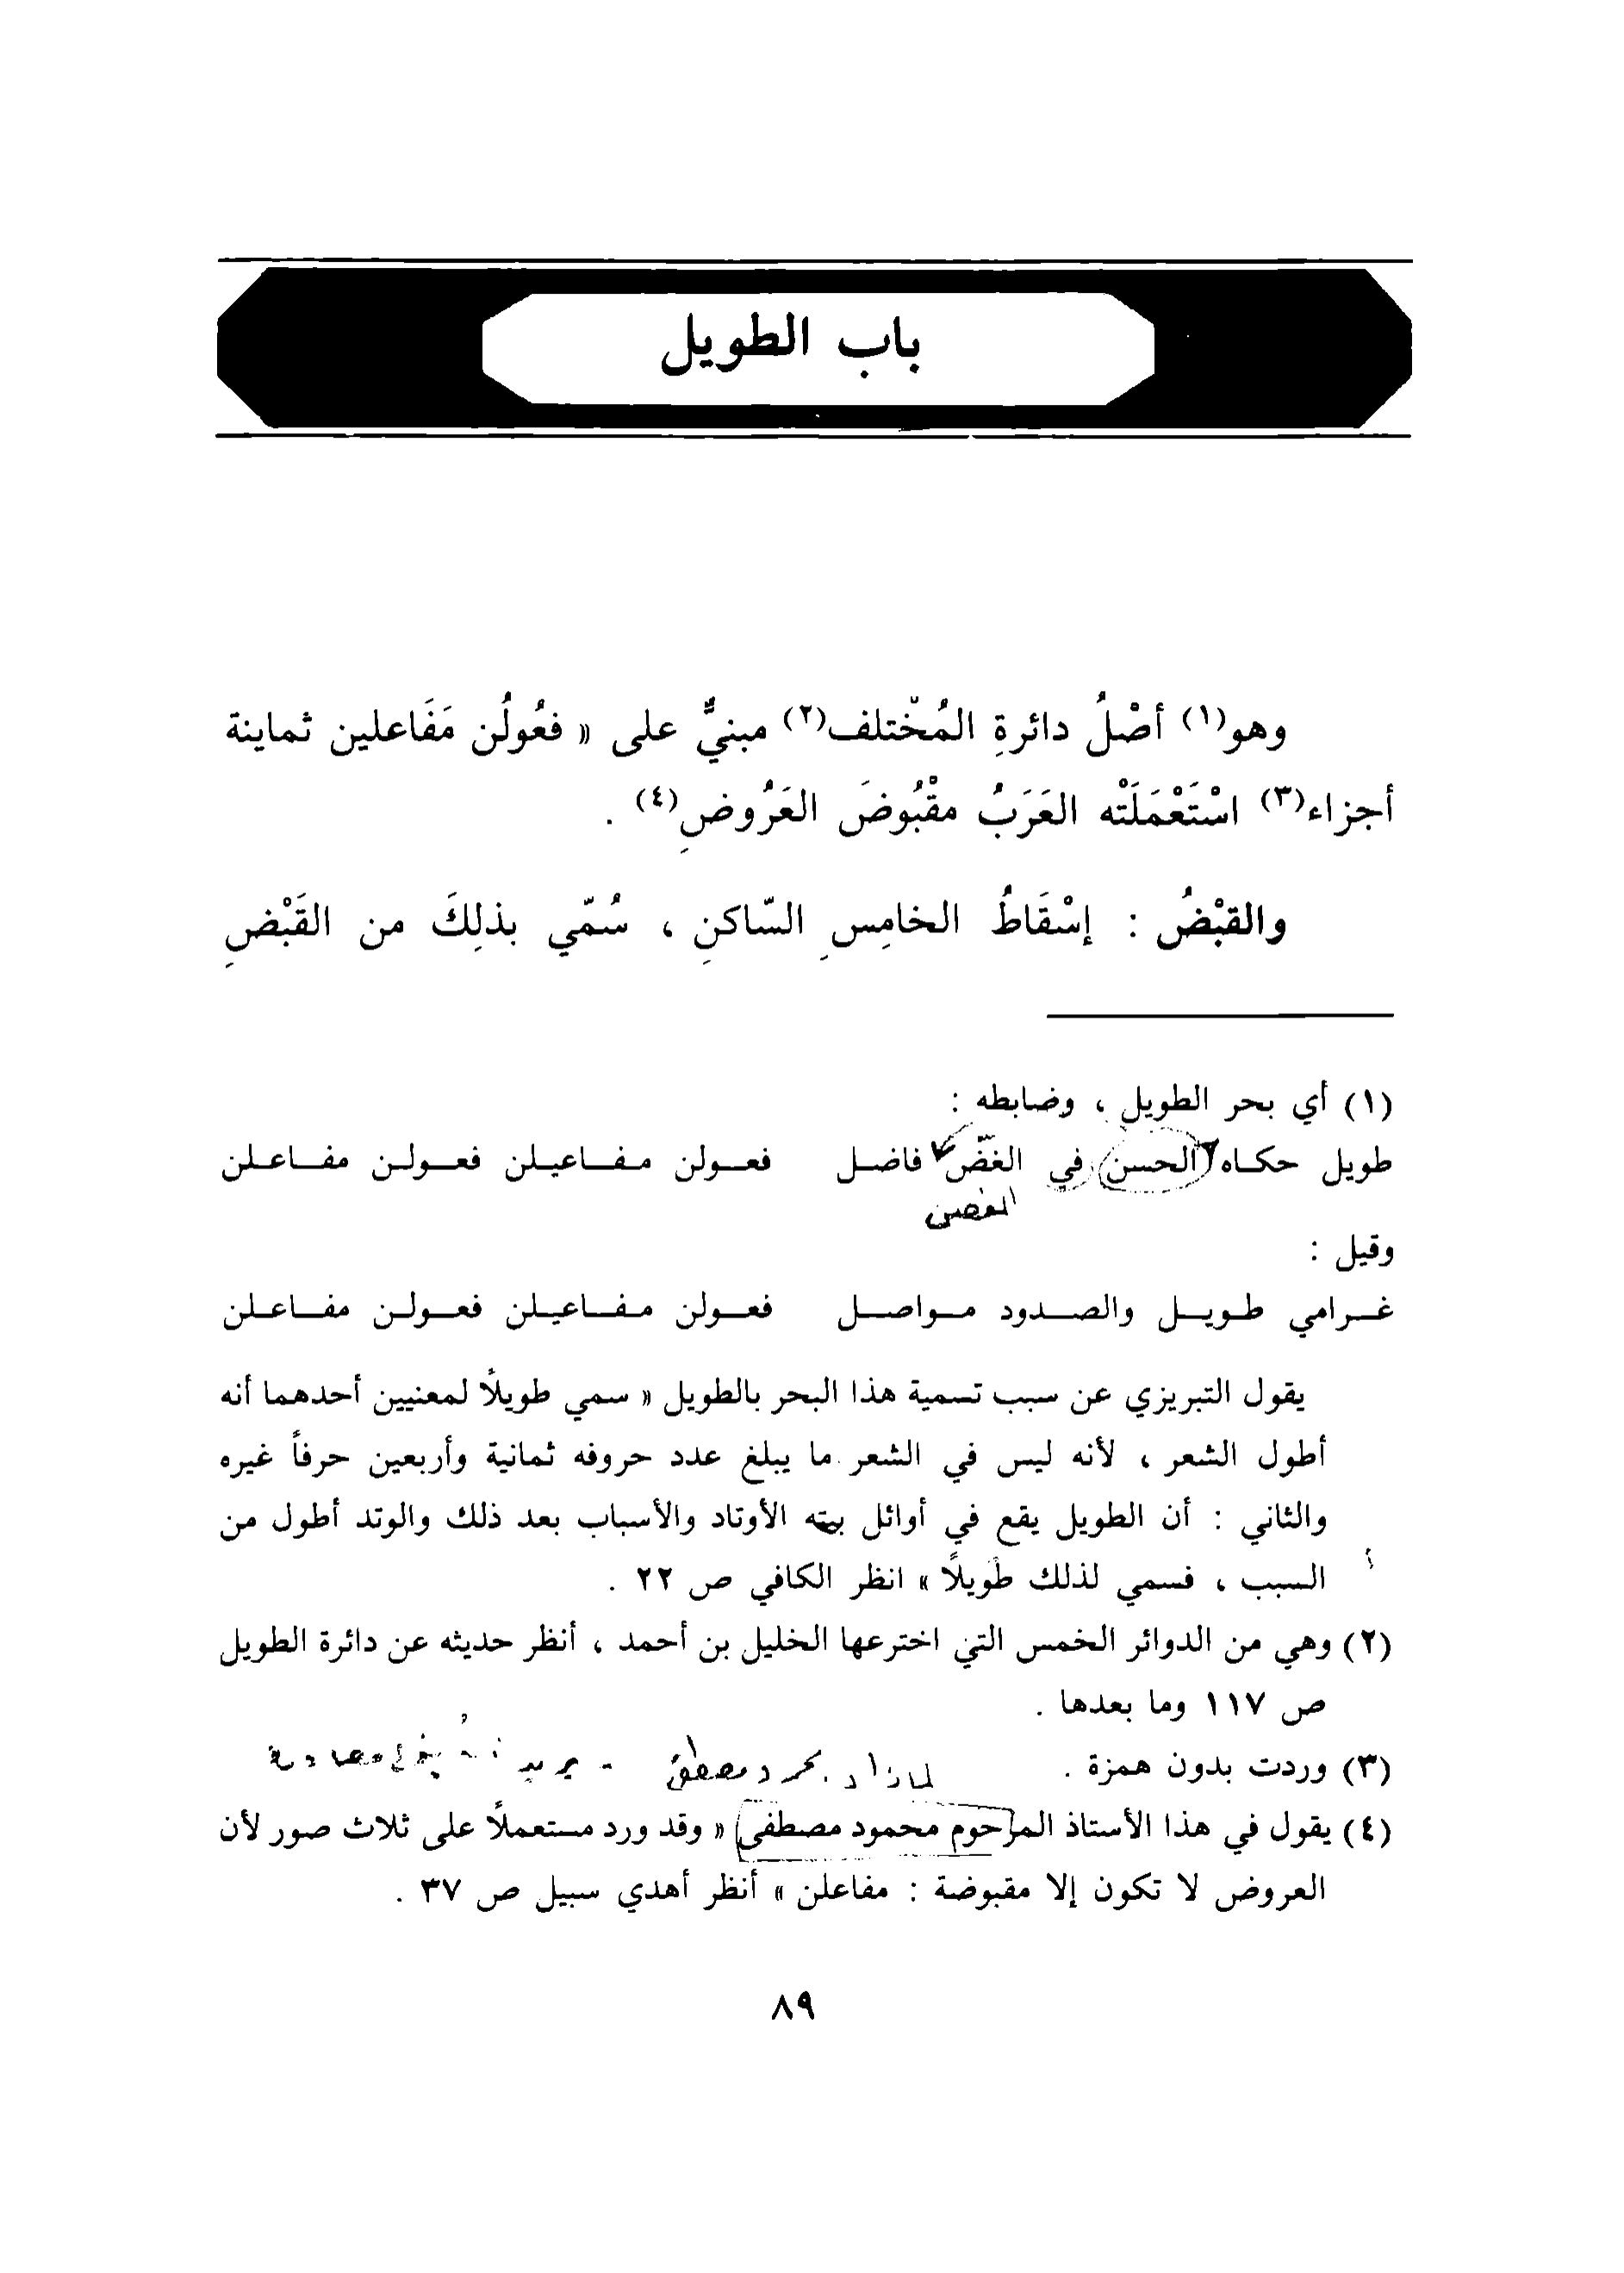 باب الطويل
وهو(١) أصْلُ دائرةِ المُخْتلف(٢) مبنيٌّ على « فعُولُن مَفَاعلين ثماينة
أجزاء(٣) اسْتَعْمَلَتْه العَرَبُ مقْبُوضَ العَرُوضِ(٤) .
والقبْضُ : إسْقَاطُ الخامِسِ السّاكنِ ، سُمّي بذلِكَ من القَبْضِ
(١) أي بحر الطويل ، وضابطه :
طويل حكاه الحسن في الغضّ فاضل فعولن مفاعيلن فعولن مفاعلن
الغصن
وقيل :
غرامي طويل والصدود مواصل فعولن مفاعيلن فعولن مفاعلن
يقول التبريزي عن سبب تسمية هذا البحر بالطويل « سمي طويلاً لمعنيين أحدهما أنه
أطول الشعر ، لأنه ليس في الشعر ما يبلغ عدد حروفه ثمانية وأربعين حرفاً غيره
والثاني : أن الطويل يقع في أوائل بيته الأوتاد والأسباب بعد ذلك والوتد أطول من
السبب ، فسمي لذلك طويلاً » انظر الكافي ص ٢٢ .
(٢) وهي من الدوائر الخمس التي اخترعها الخليل بن أحمد ، أنظر حديثه عن دائرة الطويل
ص ١١٧ وما بعدها .
(٣) وردت بدون همزة .
(٤) يقول في هذا الأستاذ المرحوم محمود مصطفى « وقد ورد مستعملاً على ثلاث صور لأن
العروض لا تكون إلا مقبوضة : مفاعلن » أنظر أهدي سبيل ص ٣٧ .
٨٩